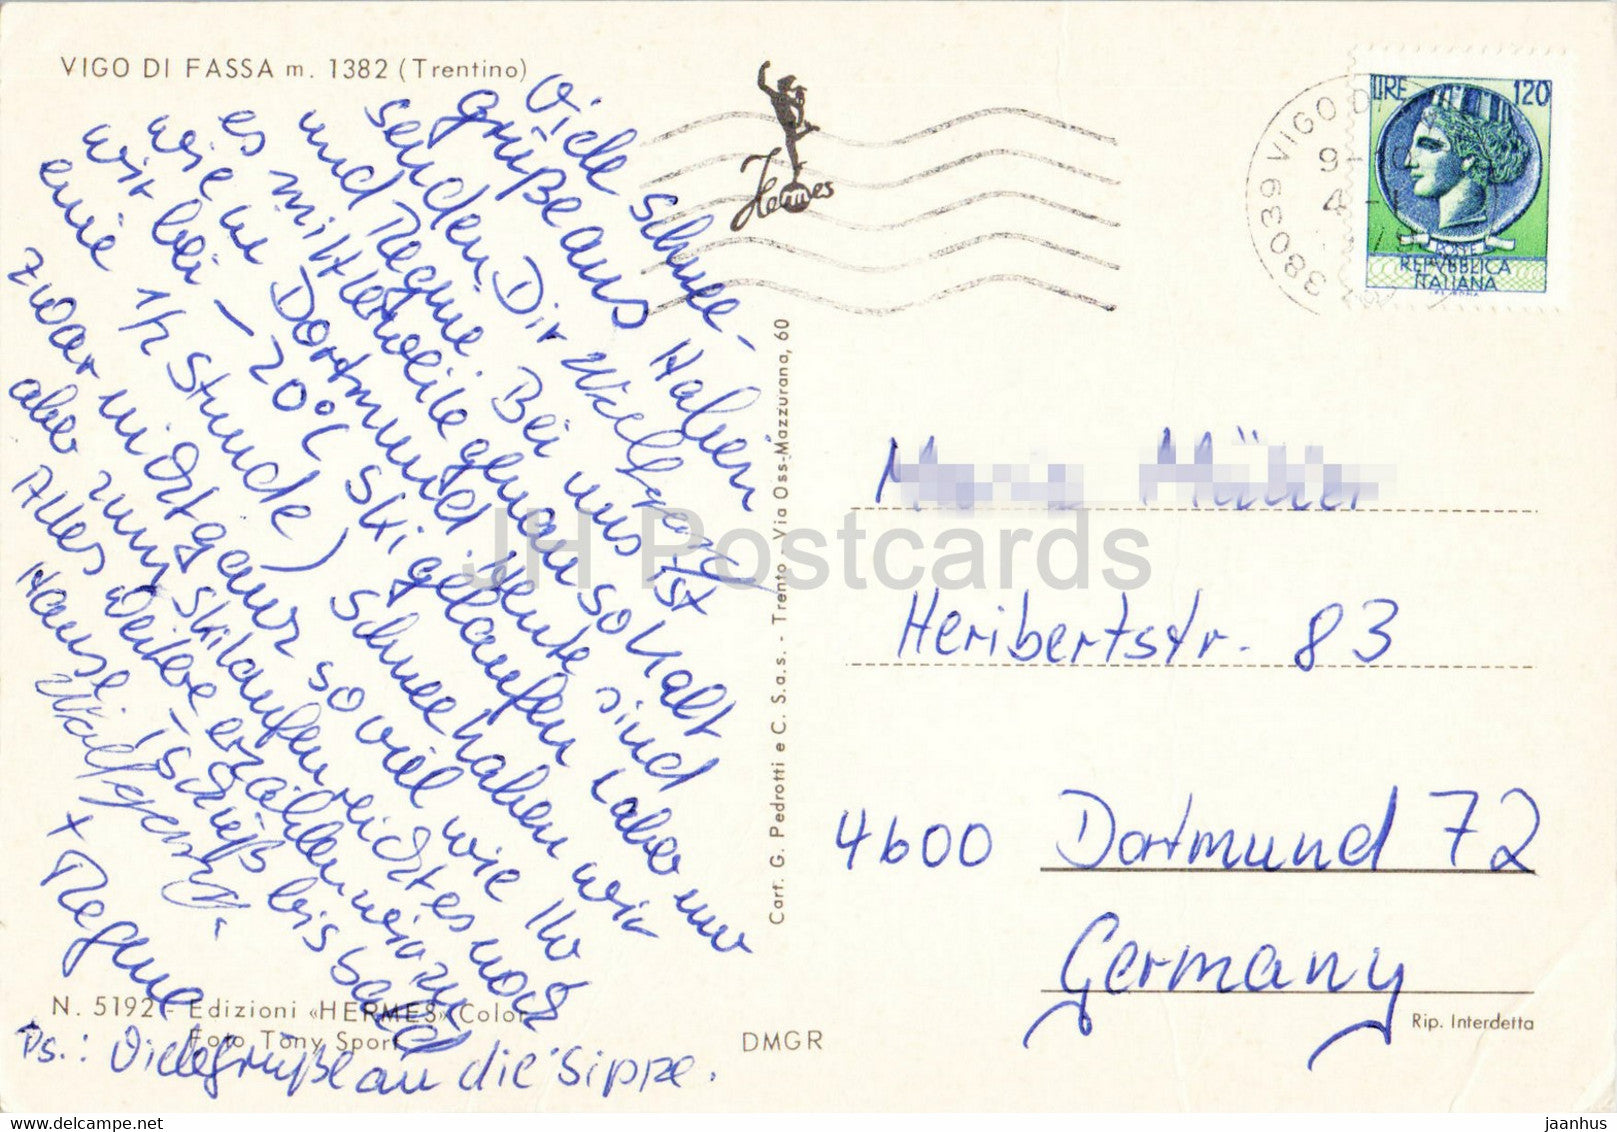 VIGO DI FASSA m. 1382 (Trentino)
Viele Schnee-
grüße aus Italien
senden Dir Wolfgang
und Regine. Bei uns ist
es mittlerweile genau so kalt
wie in Dortmund. Heute sind
wir bei -20°C Ski gelaufen (aber nur
eine 1/2 Stunde) Schnee haben wir
zwar nicht ganz so viel wie Ihr
aber zum Skilaufen reicht es noch
Alles Weitere erzählen wir zu
Hause. Tschüß bis bald
Wolfgang
+ Regine
Ps.: Viele Grüße an die Sippe.
N. 5192 - Edizioni «HERMES» Color
Foto Tony Sport
DMGR
Cart. G. Pedrotti e C. S.a.s. - Trento - Via Oss-Mazzurana, 60
Hermes
38039 VIGO DI
LIRE 120
REPVBBLICA
ITALIANA
Heribertstr. 83
4600 Dortmund 72
Germany
Rip. Interdetta
JH Postcards
jaanhus
delcampe.net